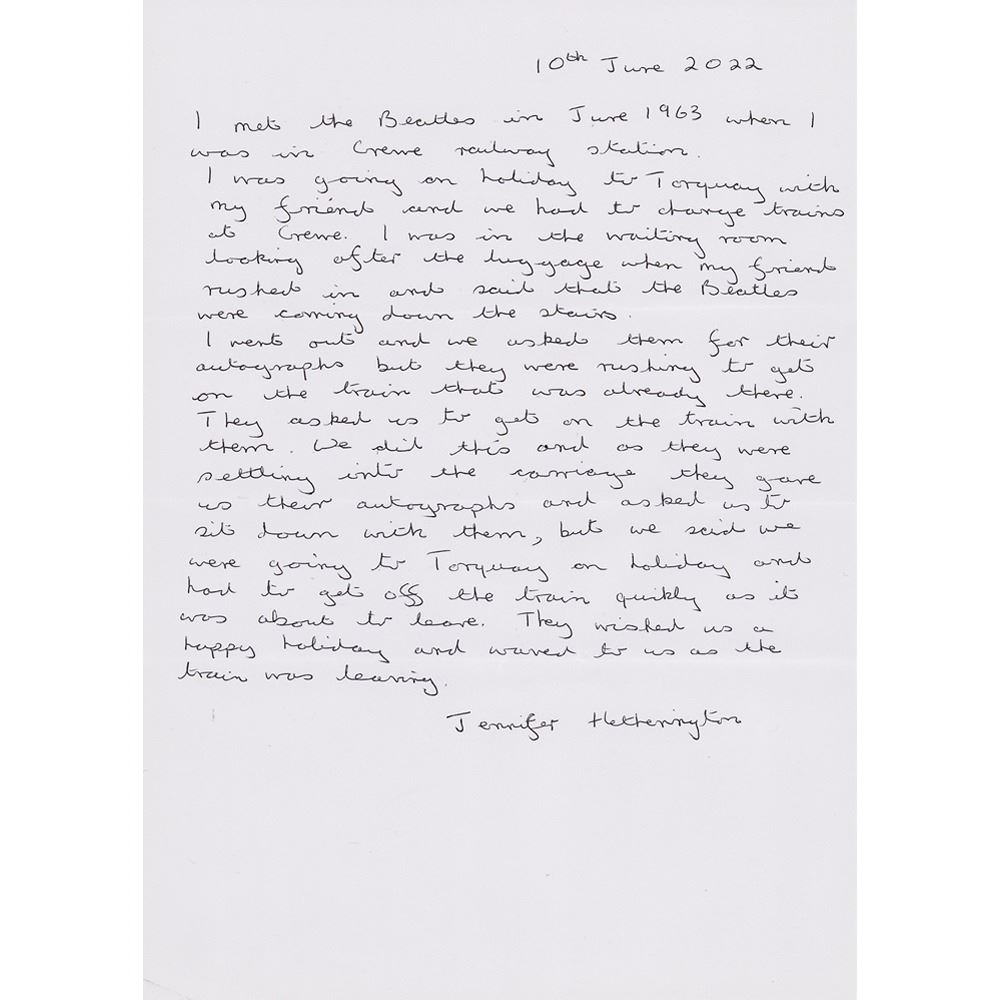 10th June 2022
I met the Beatles in June 1963 when I
was in Crewe railway station.
I was going on holiday to Torquay with
my friend and we had to change trains
at Crewe. I was in the waiting room
looking after the luggage when my friend
rushed in and said that the Beatles
were coming down the stairs.
I went out and we asked them for their
autographs but they were rushing to get
on the train that was already there.
They asked us to get on the train with
them. We did this and as they were
settling into the carriage they gave
us their autographs and asked us to
sit down with them, but we said we
were going to Torquay on holiday and
had to get off the train quikly as it
was about to leave. They wished us a
happy holiday and waved to us as the
train was leaving.
Jennifer Hetherington